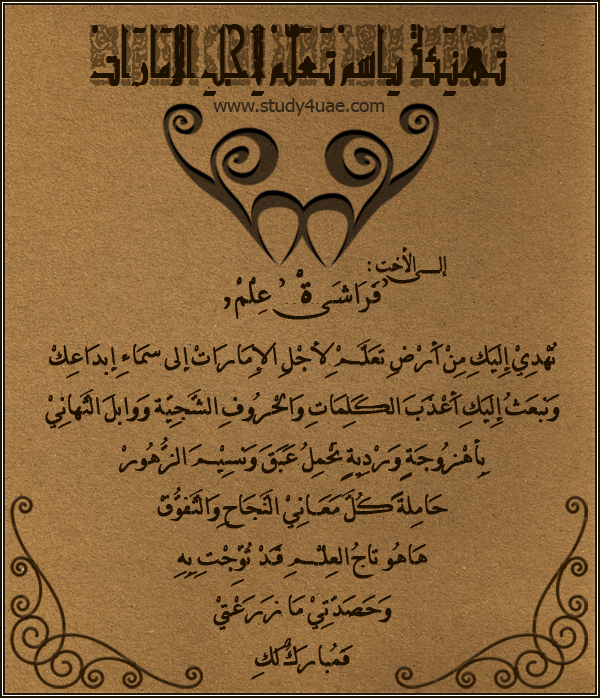 تَهْنِئَةٌ بِاسْمِ تَعَلَّمْ لِأَجْلِ الْإِمَارَاتِ
www.study4uae.com
إلى الأخت :
فَرَاشَـى ةْ ' عِلْمْ ,
نُهْدِيْ إِلَيْكِ مِنْ أَرْضِ تَعَلَّـمْ لِأَجْلِ الإِمَارَاتْ إلى سَمَاءِ إبدَاعِكْ
وَنَبعَثُ إِلَيْكِ أَعْذَبَ الكَلِمَاتِ وَالْحُرُوفِ الشَّجِيَّة وَوَابلَ الْتَهَانِيْ
بِأهْزُوجَةٍ وَرْدِيةٍ تَحْمِلُ عَبَقَ وَنَسِيْـمَ الزُّهُورْ
حَامِلةً كُلَّ مَعَانِيْ الْنَجَاحِ وَالْتَفوُّقْ
هَاهُو تاجُ العِلْـمِ قَدْ تُوِّجْتِ بِهِ
وَحَصَدْتِيْ مَا زرَرَعْتِيْ
فَمُبارَكٌ لَكِ